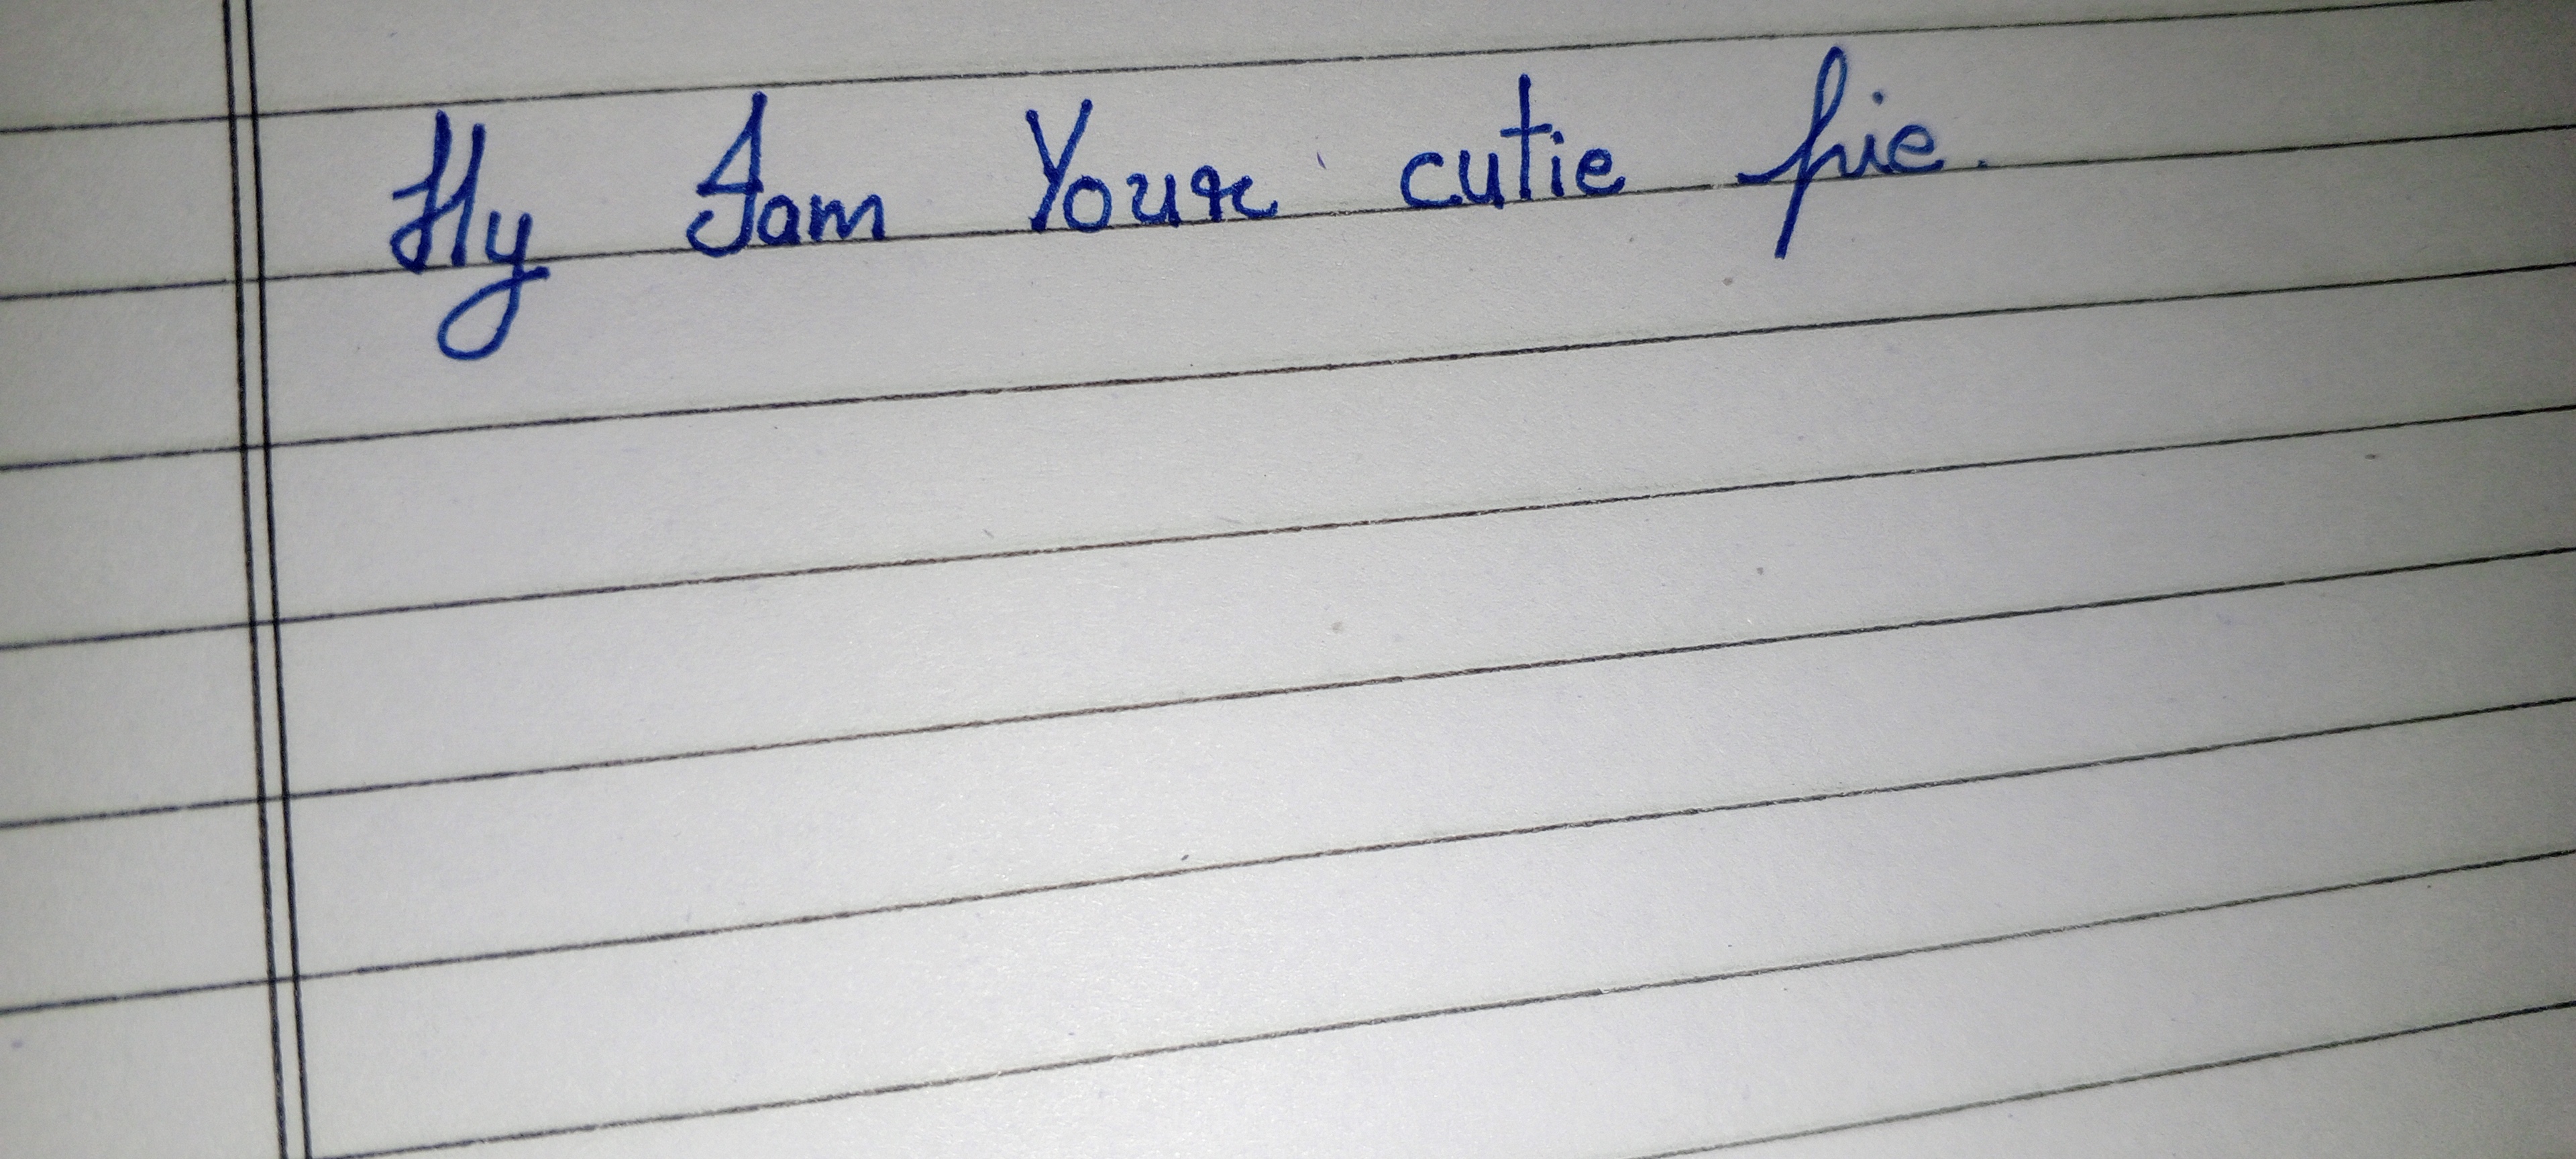 Hy Iam Your cutie pie.